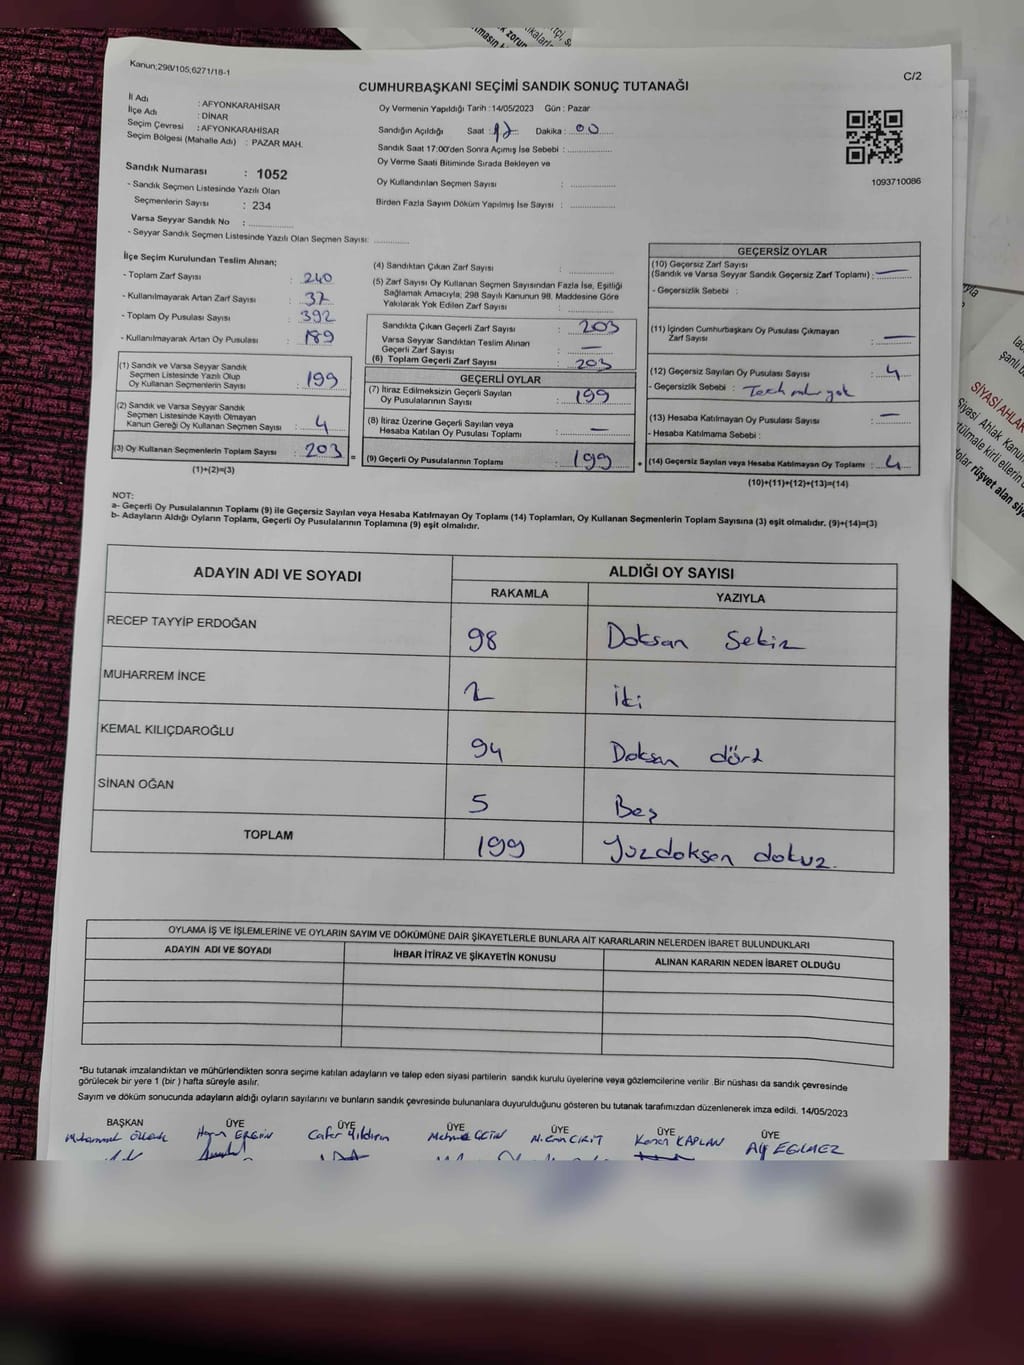 Kanun;298/105;6271/18-1
C/2
CUMHURBAŞKANI SEÇİMİ SANDIK SONUÇ TUTANAĞI
İl Adı : AFYONKARAHİSAR
İlçe Adı : DİNAR
Seçim Çevresi : AFYONKARAHİSAR
Seçim Bölgesi (Mahalle Adı) : PAZAR MAH.
Oy Vermenin Yapıldığı Tarih : 14/05/2023 Gün : Pazar
Sandığın Açıldığı Saat : 17 Dakika : 00
Sandık Saat 17:00'den Sonra Açılmış İse Sebebi :
Oy Verme Saati Bitiminde Sırada Bekleyen ve
Oy Kullandırılan Seçmen Sayısı :
Birden Fazla Sayım Döküm Yapılmış İse Sayısı :
1093710086
Sandık Numarası : 1052
- Sandık Seçmen Listesinde Yazılı Olan
Seçmenlerin Sayısı : 234
Varsa Seyyar Sandık No :
- Seyyar Sandık Seçmen Listesinde Yazılı Olan Seçmen Sayısı:
İlçe Seçim Kurulundan Teslim Alınan;
- Toplam Zarf Sayısı : 240
- Kullanılmayarak Artan Zarf Sayısı : 37
- Toplam Oy Pusulası Sayısı : 392
- Kullanılmayarak Artan Oy Pusulası : 189
(1) Sandık ve Varsa Seyyar Sandık
Seçmen Listesinde Yazılı Olup
Oy Kullanan Seçmenlerin Sayısı : 199
(2) Sandık ve Varsa Seyyar Sandık
Seçmen Listesinde Kayıtlı Olmayan
Kanun Gereği Oy Kullanan Seçmen Sayısı : 4
(3) Oy Kullanan Seçmenlerin Toplam Sayısı : 203
(1)+(2)=(3)
(4) Sandıktan Çıkan Zarf Sayısı :
(5) Zarf Sayısı Oy Kullanan Seçmen Sayısından Fazla İse, Eşitliği
Sağlamak Amacıyla; 298 Sayılı Kanunun 98. Maddesine Göre
Yakılarak Yok Edilen Zarf Sayısı :
Sandıkta Çıkan Geçerli Zarf Sayısı : 203
Varsa Seyyar Sandıktan Teslim Alınan
Geçerli Zarf Sayısı : —
(6) Toplam Geçerli Zarf Sayısı : 203
GEÇERLİ OYLAR
(7) İtiraz Edilmeksizin Geçerli Sayılan
Oy Pusulalarının Sayısı : 199
(8) İtiraz Üzerine Geçerli Sayılan veya
Hesaba Katılan Oy Pusulası Toplamı : —
(9) Geçerli Oy Pusulalarının Toplamı : 199
GEÇERSİZ OYLAR
(10) Geçersiz Zarf Sayısı
(Sandık ve Varsa Seyyar Sandık Geçersiz Zarf Toplamı) : —
- Geçersizlik Sebebi :
(11) İçinden Cumhurbaşkanı Oy Pusulası Çıkmayan
Zarf Sayısı : —
(12) Geçersiz Sayılan Oy Pusulası Sayısı : 4
- Geçersizlik Sebebi :
(13) Hesaba Katılmayan Oy Pusulası Sayısı : —
- Hesaba Katılmama Sebebi :
(14) Geçersiz Sayılan veya Hesaba Katılmayan Oy Toplamı : 4
(10)+(11)+(12)+(13)=(14)
NOT:
a- Geçerli Oy Pusulalarının Toplamı (9) ile Geçersiz Sayılan veya Hesaba Katılmayan Oy Toplamı (14) Toplamları, Oy Kullanan Seçmenlerin Toplam Sayısına (3) eşit olmalıdır. (9)+(14)=(3)
b- Adayların Aldığı Oyların Toplamı, Geçerli Oy Pusulalarının Toplamına (9) eşit olmalıdır.
ADAYIN ADI VE SOYADI ALDIĞI OY SAYISI
RAKAMLA YAZIYLA
RECEP TAYYİP ERDOĞAN 98 Doksan Sekiz
MUHARREM İNCE 2 İki
KEMAL KILIÇDAROĞLU 94 Doksan dört
SİNAN OĞAN 5 Beş
TOPLAM 199 Yüzdoksan dokuz.
OYLAMA İŞ VE İŞLEMLERİNE VE OYLARIN SAYIM VE DÖKÜMÜNE DAİR ŞİKAYETLERLE BUNLARA AİT KARARLARIN NELERDEN İBARET BULUNDUKLARI
ADAYIN ADI VE SOYADI İHBAR İTİRAZ VE ŞİKAYETİN KONUSU ALINAN KARARIN NEDEN İBARET OLDUĞU
*Bu tutanak imzalandıktan ve mühürlendikten sonra seçime katılan adayların ve talep eden siyasi partilerin sandık kurulu üyelerine veya gözlemcilerine verilir .Bir nüshası da sandık çevresinde
görülecek bir yere 1 (bir ) hafta süreyle asılır.
Sayım ve döküm sonucunda adayların aldığı oyların sayılarını ve bunların sandık çevresinde bulunanlara duyurulduğunu gösteren bu tutanak tarafımızdan düzenlenerek imza edildi. 14/05/2023
BAŞKAN ÜYE ÜYE ÜYE ÜYE ÜYE ÜYE
Muhammed ERGÜN Cafer Yıldırım Mehmet ÇETİN Kenan KAPLAN EĞİLMEZ
SİYASİ AHLAK
Siyasi Ahlak Kanun
rüşvet alan